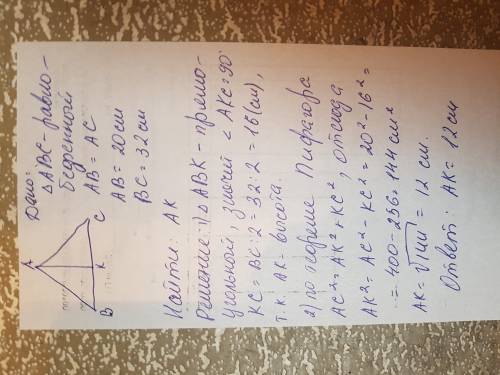 Дано:
△ABC - равно-
бедренный
AB = AC
AB = 20 см
BC = 32 см
A
B
K
C
Найти: AK
Решение: 1) △ABK - прямо-
угольный, значит < AKC = 90°
KC = BC : 2 = 32 : 2 = 16 (см),
т.к. AK - высота.
2) по теореме Пифагора
AC² = AK² + KC², отсюда
AK² = AC² - KC² = 20² - 16² =
= 400 - 256 = 144 см²
AK = √144 = 12 см.
Ответ: AK = 12 см